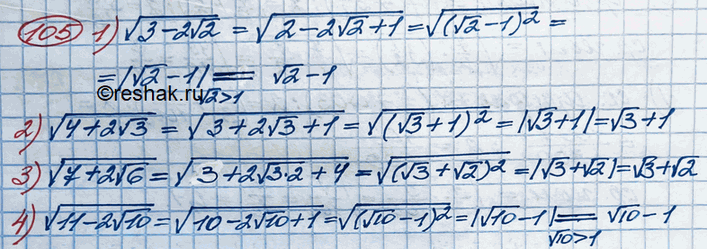 105 1) √(3-2√2) = √(2-2√2+1) = √((√2-1)²) =
= |√2-1| = √2-1
©reshak.ru √2>1
2) √(4+2√3) = √(3+2√3+1) = √((√3+1)²) = |√3+1| = √3+1
3) √(7+2√6) = √(3+2√3·2+4) = √((√3+√2)²) = |√3+√2| = √3+√2
4) √(11-2√10) = √(10-2√10+1) = √((√10-1)²) = |√10-1| = √10-1
√10>1